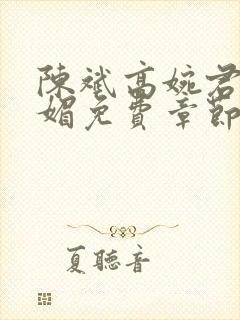 陳斌高婉君
媚免費章節
夏聽音